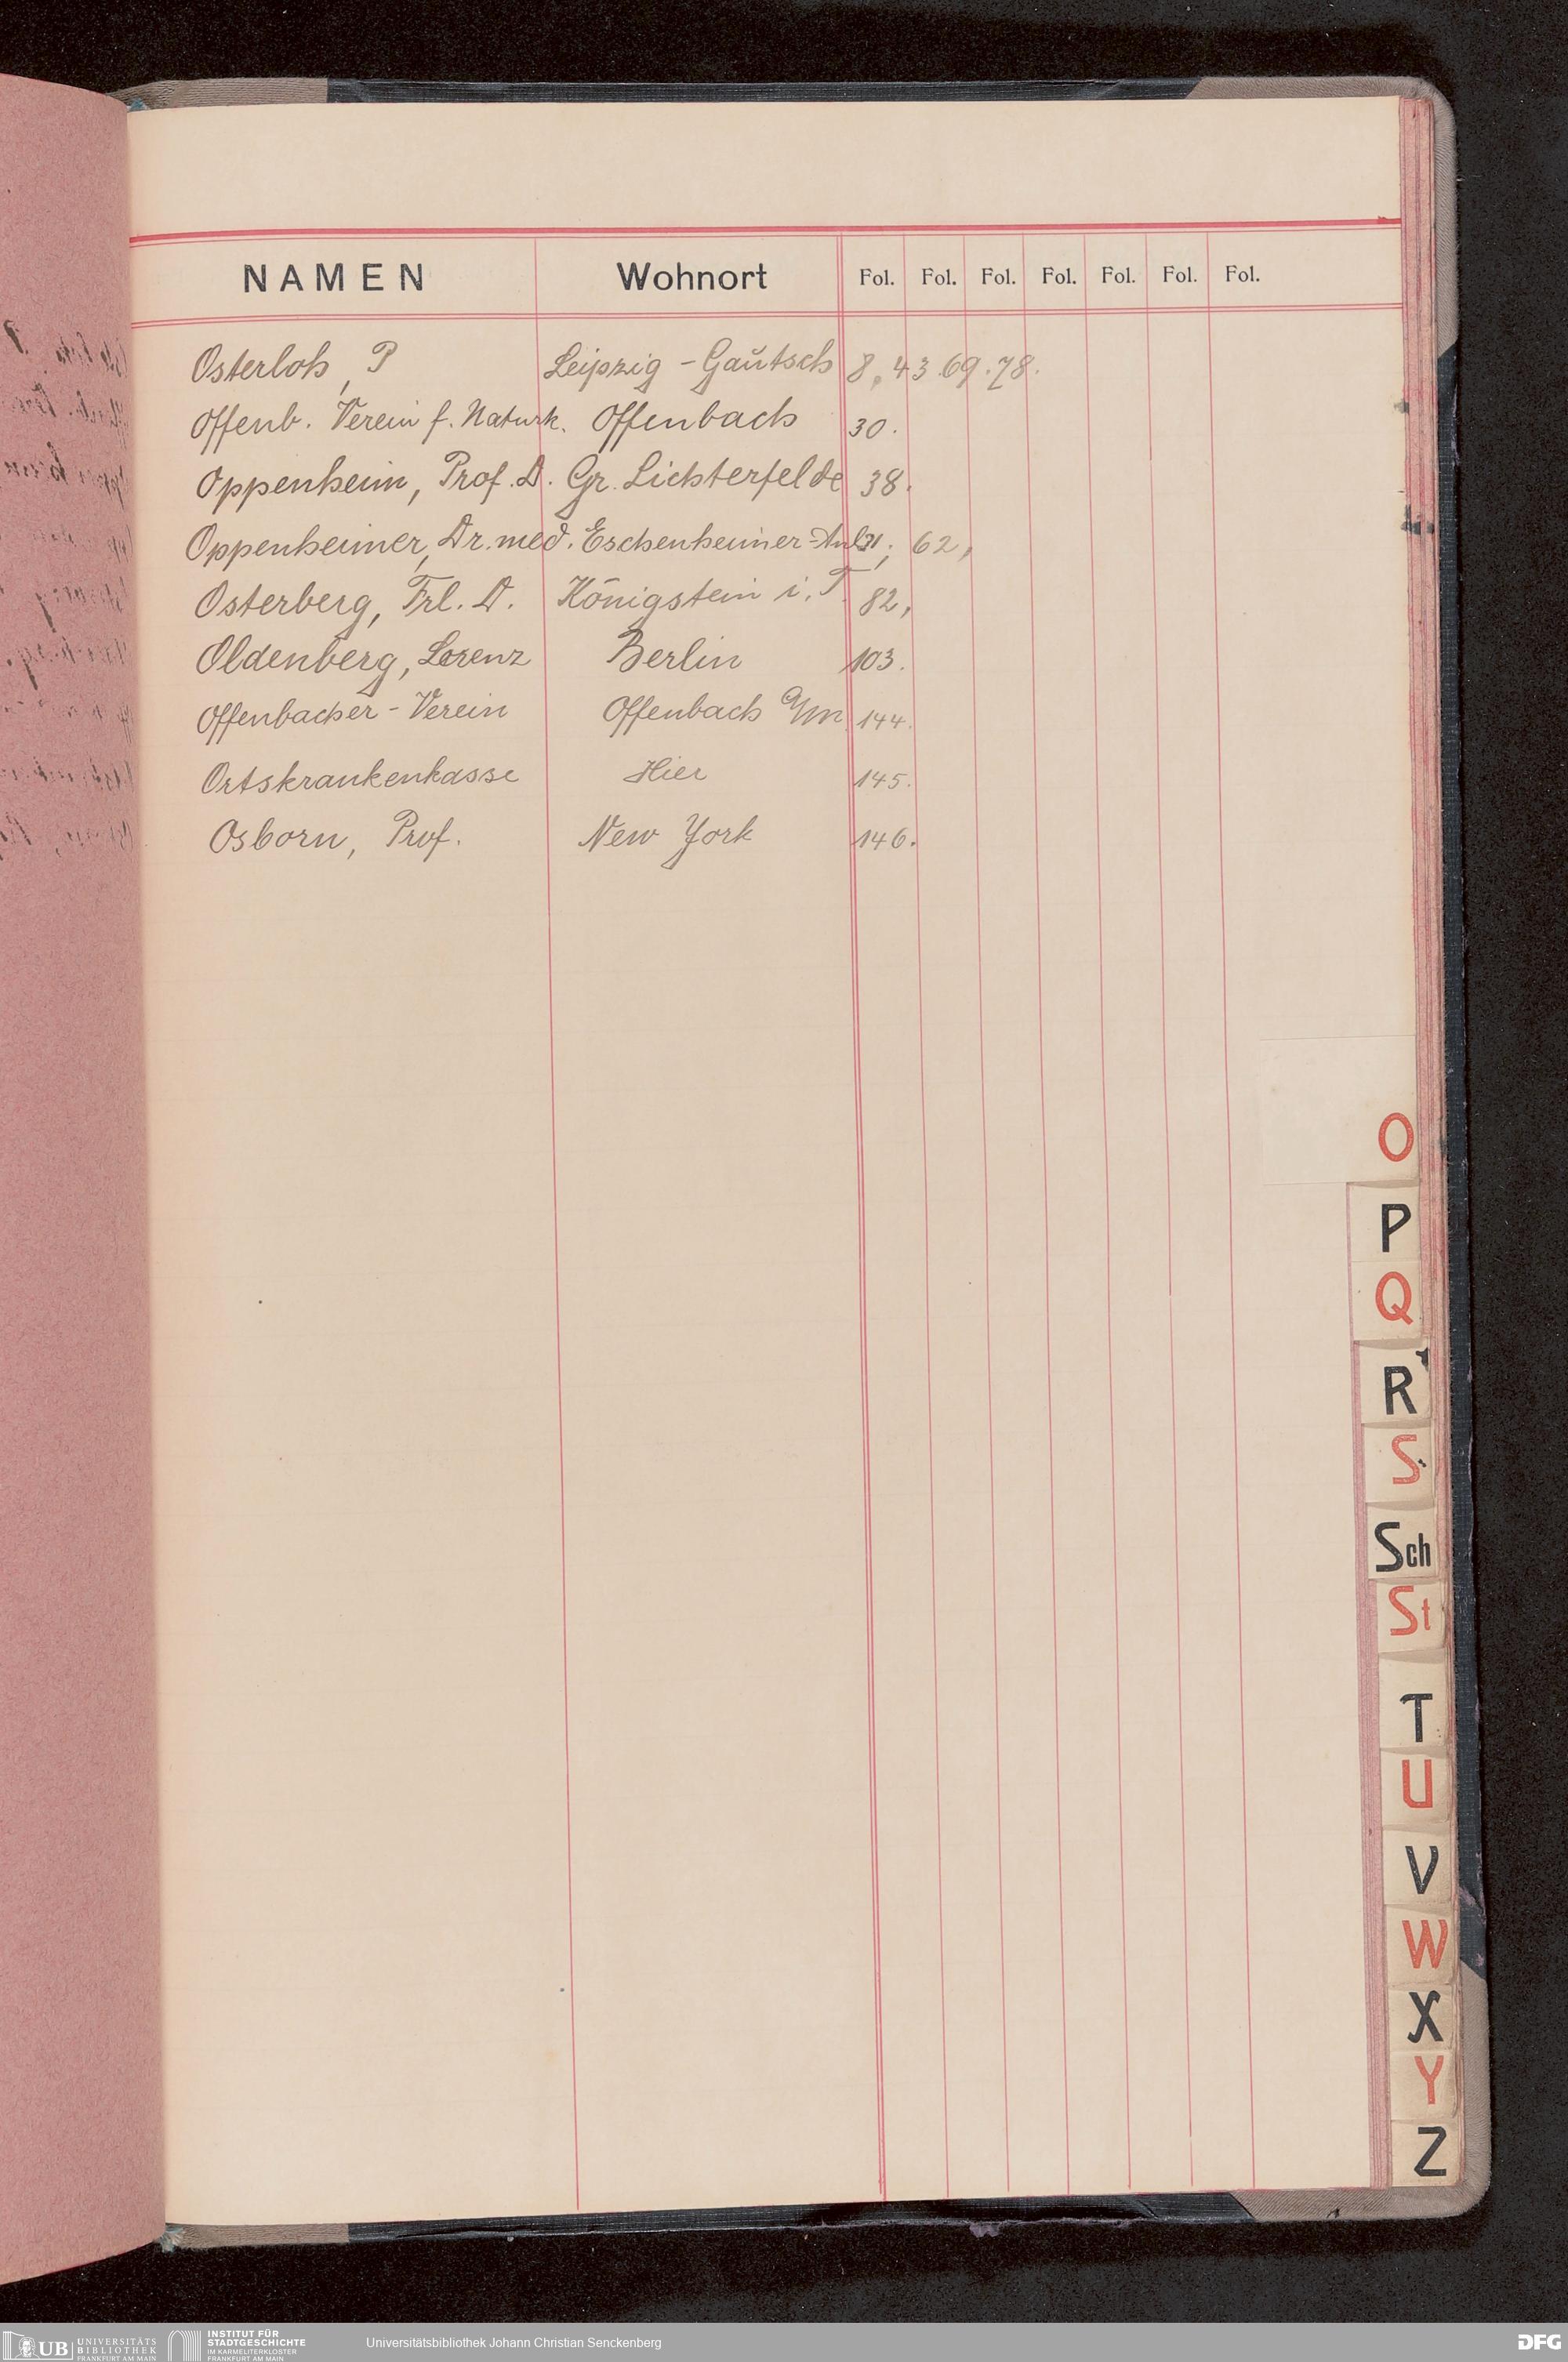 NAMEN Wohnort Fol. Fol. Fol. Fol. Fol. Fol. Fol.
Osterloh, P Leipzig - Gaŭtsch 8, 43. 69. 78.
Offenb. Verein f. Naturk. Offenbach 30.
Oppenheim, Prof. D. Gr. Lichterfelde 38.
Oppenheimer, Dr. med. Eschenheimer-Anl. 31, 62,
Osterberg, Frl. D. Königstein i. T. 82,
Oldenberg, Lorenz Berlin 103.
Offenbacher - Verein Offenbach a/m 144.
Ortskrankenkasse Hier 145.
Osborn, Prof. New York 146.
O
P
Q
R
S
Sch
St
T
U
V
W
X
Y
Z
UB UNIVERSITÄTS BIBLIOTHEK FRANKFURT AM MAIN
INSTITUT FÜR STADTGESCHICHTE IM KARMELITERKLOSTER FRANKFURT AM MAIN
Universitätsbibliothek Johann Christian Senckenberg
DFG